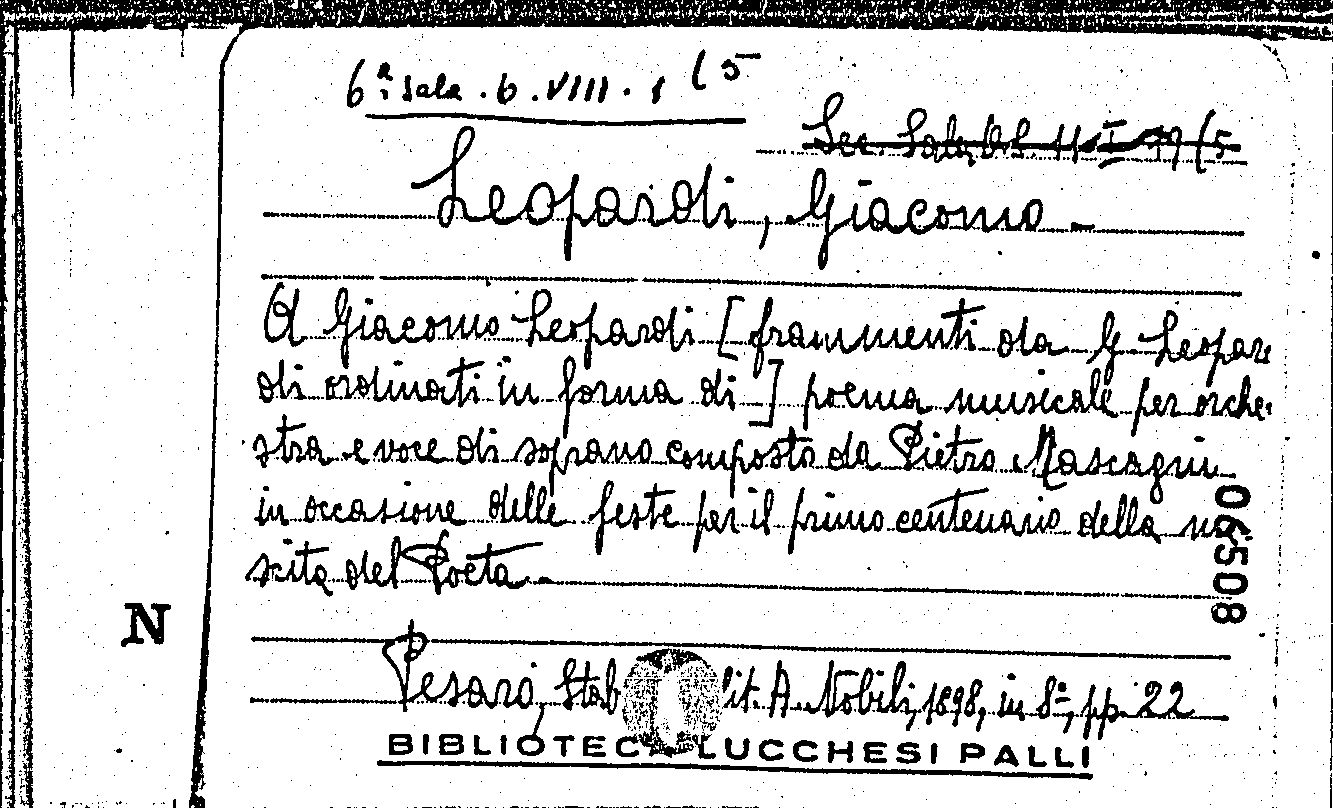 6ª Sala . b . VIII . 1 (5
Sec. Sala, Q.S. 11 I 19 (5
Leopardi, Giacomo -
A Giacomo Leopardi [frammenti da G. Leopar
di ordinati in forma di] poema musicale per orche-
stra e voce di soprano composto da Pietro Mascagni
in occasione delle feste per il primo centenario della na
scita del Poeta. -
06508
N
Pesaro, Stab lit. A. Nobili, 1898, in 8º, pp. 22
BIBLIOTECA LUCCHESI PALLI